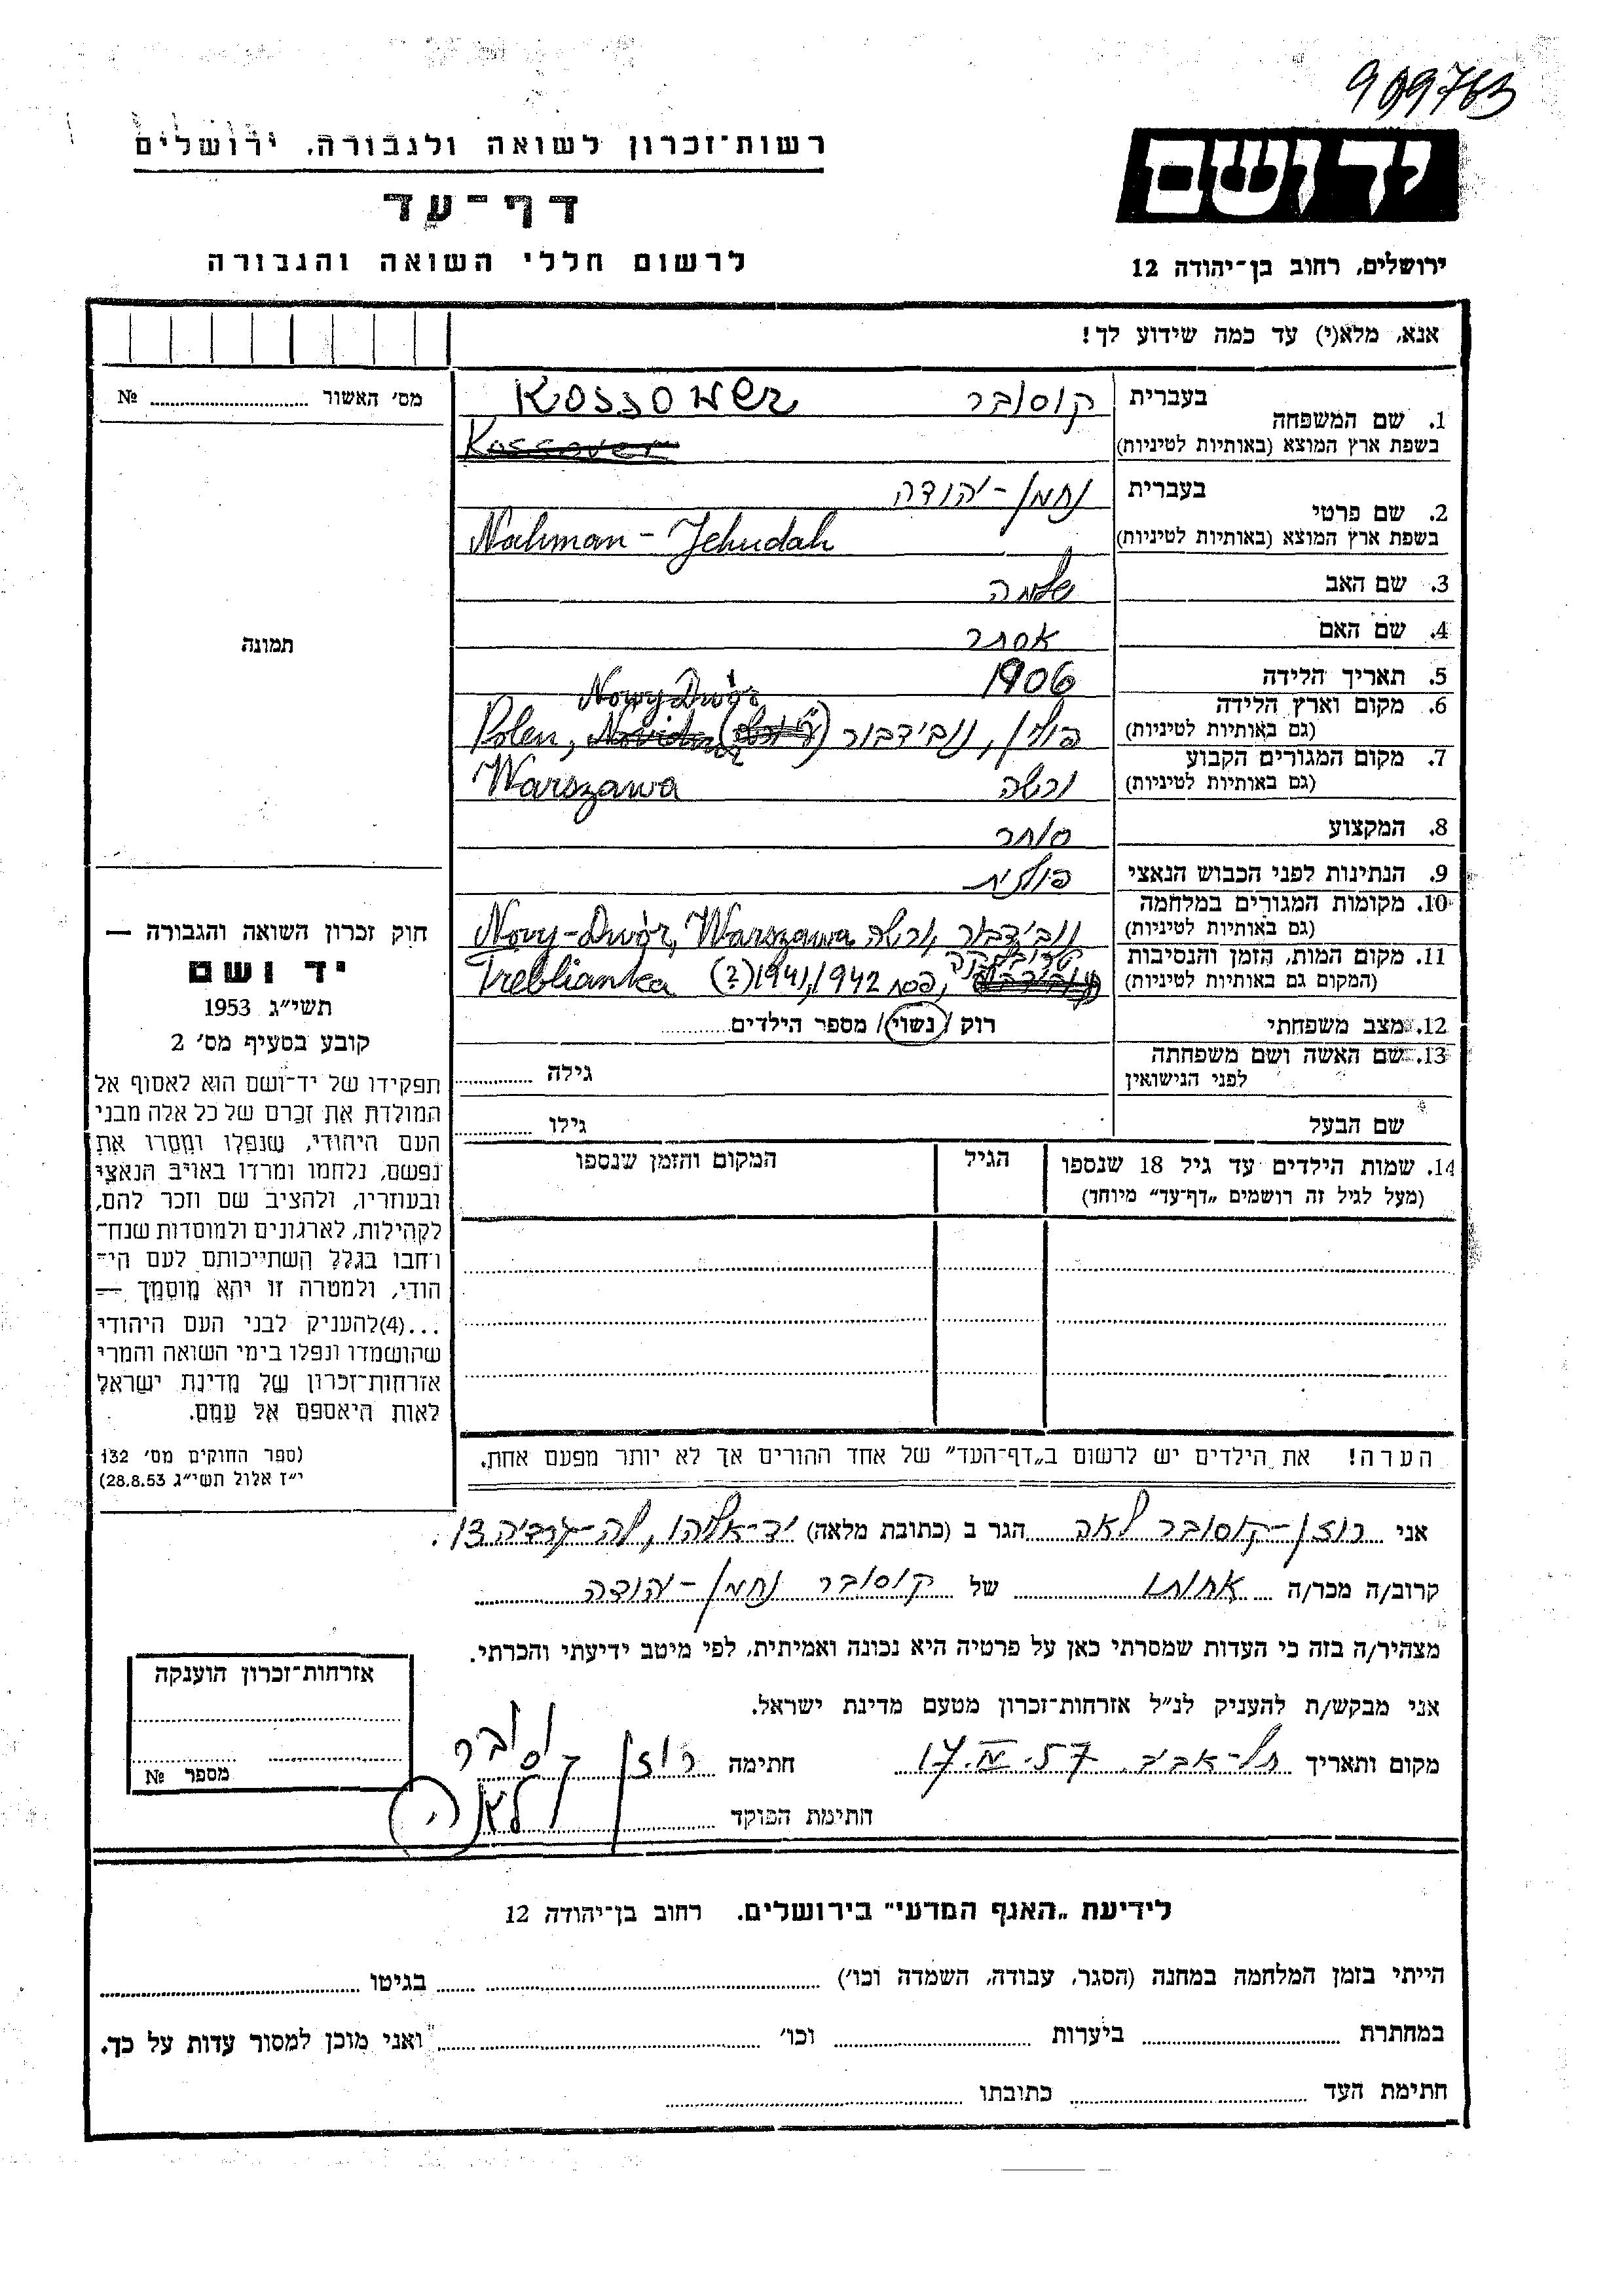 909763
רשות־זכרון לשואה ולגבורה. ירושלים
ידושם
דף־עד
לרשום חללי השואה והגבורה
ירושלים, רחוב בן־יהודה 12
אנא, מלא(י) עד כמה שידוע לך!
מס׳ האשור № 
1. שם המשפחה
בעברית קוסובר KOSSOWER
בשפת ארץ המוצא (באותיות לטיניות) Kossover
2. שם פרטי
בעברית נחמן-יהודה
בשפת ארץ המוצא (באותיות לטיניות) Nahman - Jehudah
3. שם האב שלמה
4. שם האם אסתר
תמונה
5. תאריך הלידה 1906
6. מקום וארץ הלידה
(גם באותיות לטיניות) פולין, נובידבור Polen, Nowy Dwór
7. מקום המגורים הקבוע
(גם באותיות לטיניות) ורשה Warszawa
8. המקצוע סוחר
9. הנתינות לפני הכבוש הנאצי פולנית
10. מקומות המגורים במלחמה
(גם באותיות לטיניות) נובידבור, ורשה Novy-Dwór, Warszawa
11. מקום המות, הזמן והנסיבות
(המקום גם באותיות לטיניות) טרבלינקה, פסח 1941/1942 (?) Treblianka
12. מצב משפחתי רוק / נשוי / מספר הילדים
13. שם האשה ושם משפחתה
לפני הנישואין גילה
שם הבעל גילו
14. שמות הילדים עד גיל 18 שנספו
(מעל לגיל זה רושמים „דף־עד״ מיוחד)
הגיל
המקום והזמן שנספו
חוק זכרון השואה והגבורה —
יד ושם
תשי״ג 1953
קובע בסעיף מס׳ 2
תפקידו של יד־ושם הוא לאסוף אל
המולדת את זכרם של כל אלה מבני
העם היהודי, שנפלו ומסרו את
נפשם, נלחמו ומרדו באויב הנאצי
ובעוזריו, ולהציב שם וזכר להם,
לקהילות, לארגונים ולמוסדות שנח־
רחבו בגלל השתייכותם לעם הי־
הודי, ולמטרה זו יהא מוסמך —
...(4)להעניק לבני העם היהודי
שהושמדו ונפלו בימי השואה והמרי
אזרחות־זכרון של מדינת ישראל
לאות היאספם אל עמם.
(ספר החוקים מס׳ 132
י״ז אלול תשי״ג 28.8.53)
הערה! את הילדים יש לרשום ב„דף־העד״ של אחד ההורים אך לא יותר מפעם אחת.
אני רוזן-קוסובר לאה הגר ב (כתובת מלאה) יד-אליהו, לה-גרדיה 13.
קרוב/ה מכר/ה אחותו של קוסובר נחמן-יהודה
מצהיר/ה בזה כי העדות שמסרתי כאן על פרטיה היא נכונה ואמיתית, לפי מיטב ידיעתי והכרתי.
אני מבקש/ת להעניק לנ״ל אזרחות־זכרון מטעם מדינת ישראל.
מקום ותאריך תל-אביב, 17.IV.57 חתימה רוזן קוסובר
לאה
חתימת הפוקד
אזרחות־זכרון הוענקה
מספר №
לידיעת „האגף המדעי״ בירושלים. רחוב בן־יהודה 12
הייתי בזמן המלחמה במחנה (הסגר, עבודה, השמדה וכו׳) בגיטו
במחתרת ביערות וכו׳ ואני מוכן למסור עדות על כך.
חתימת העד כתובתו